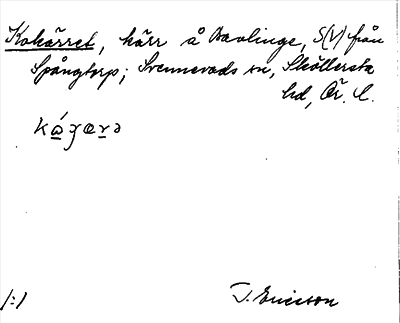 Kokärret, kärr å Bavlinge, S(V) från
Spångtorp; Svennevads sn, Sköllersta
hd, Ör. l.
/:/ J. Ericsson